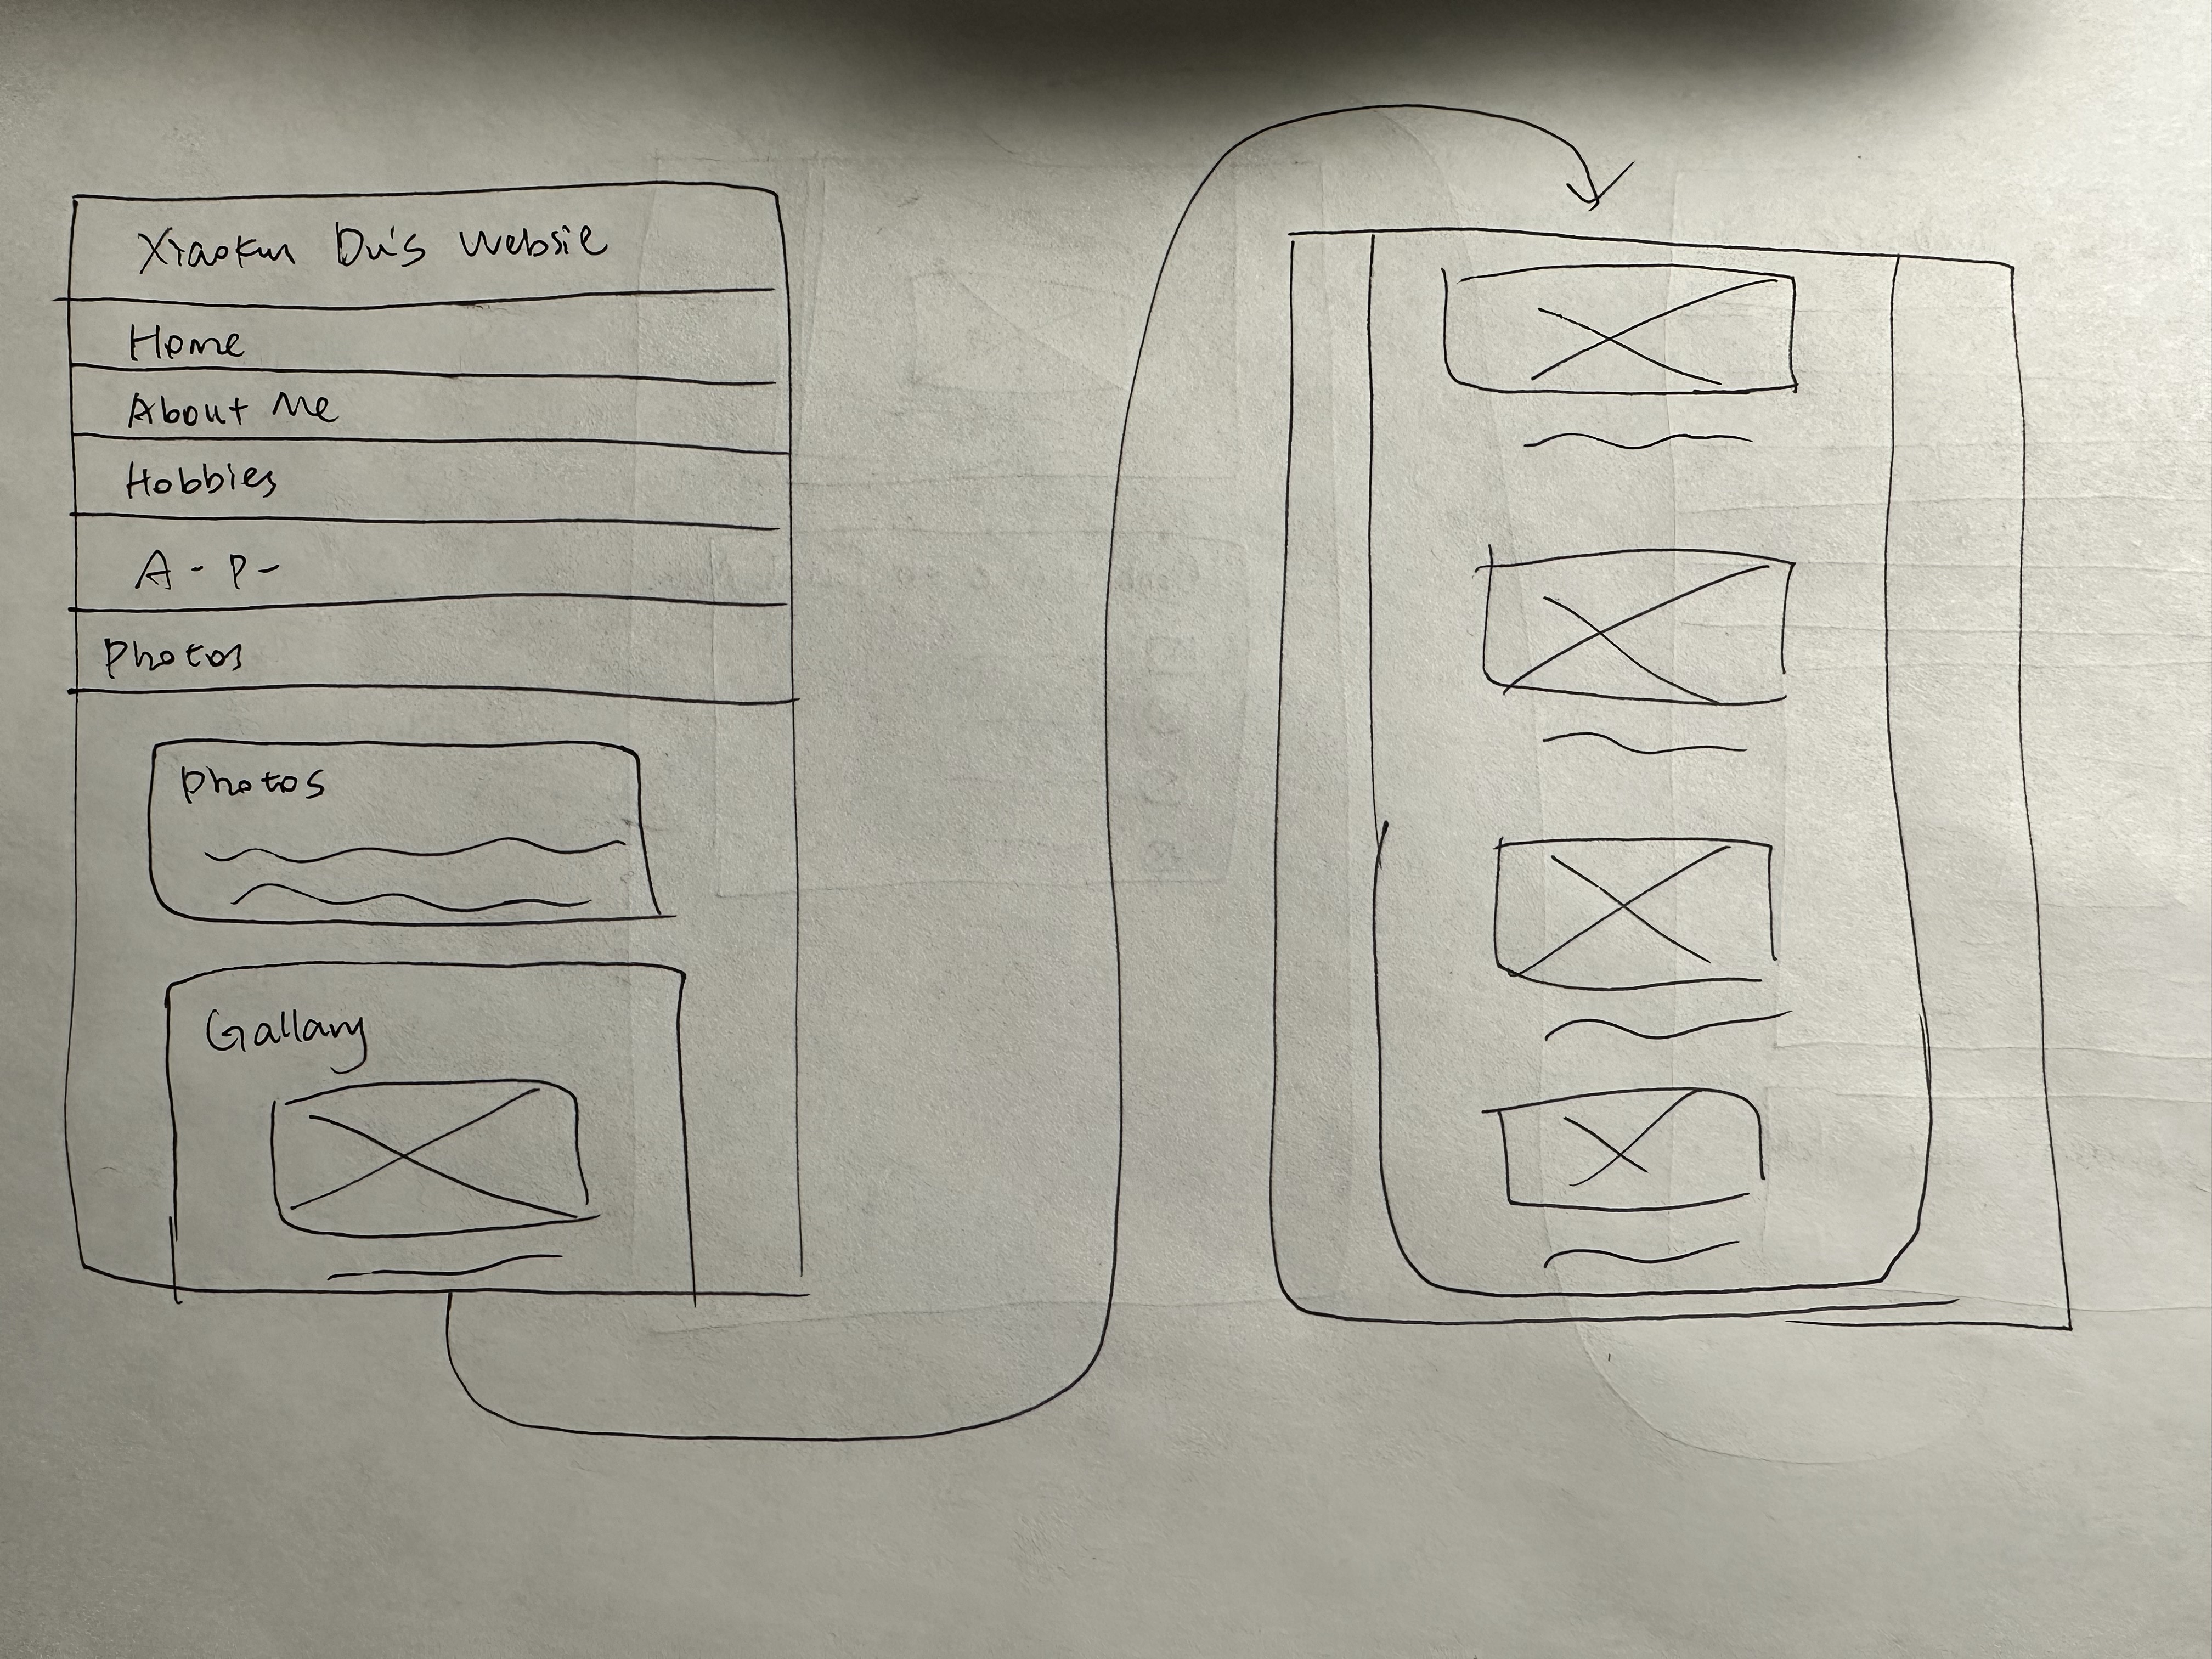 Xiaokun Du's Websie
Home
About Me
Hobbies
A - P -
Photos
Photos
Gallary